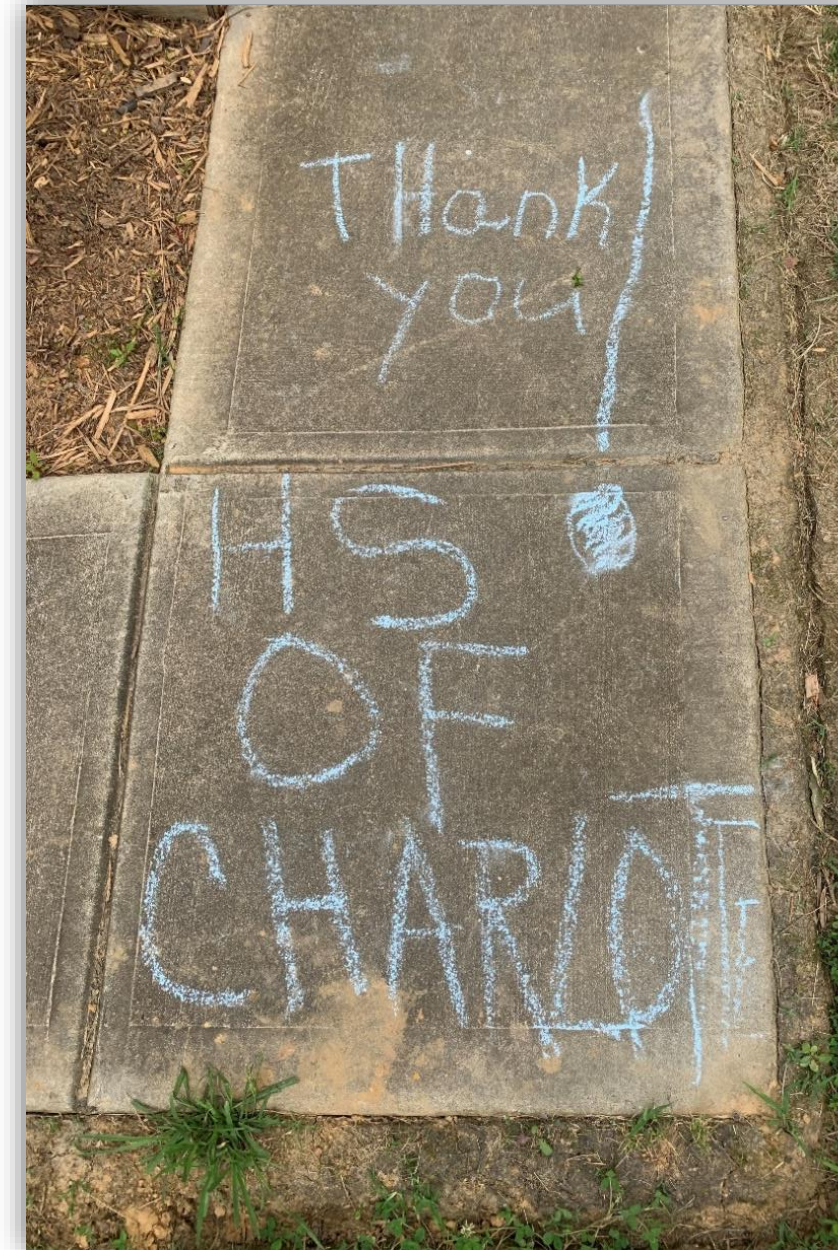 THank
you!
HS
OF
CHARLOTTE